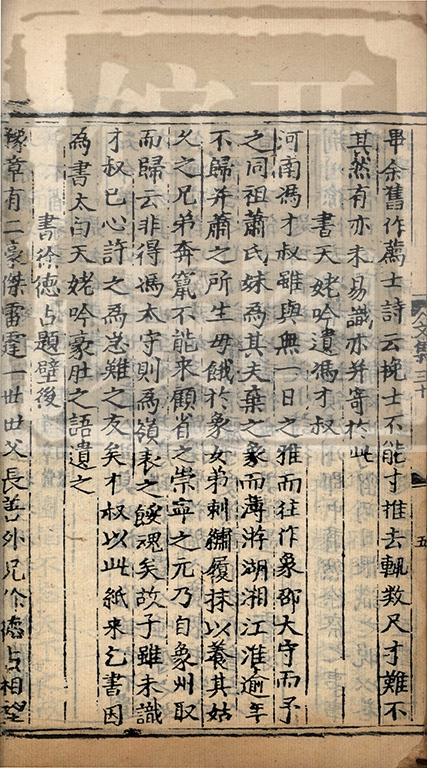 畢余舊作薦士詩云挽士不能寸推去輒數尺才難不
其然有亦未易識亦并寄於此
書天姥吟遺馮才叔
河南馮才叔雖與無一日之雅而往作象郡大守而予
之同祖蕭氏妹為其夫棄之象而薄游湖湘江淮逾年
不歸并蕭之所生母餓於象女弟刺繡履抹以養其姑
久之兄弟奔竄不能來顧省之崇寧之元乃自象州取
而歸云非得馮太守則為嶺表之餒魂矣故予雖未識
才叔已心許之為急難之友矣才叔以此紙来乞書因
為書太白天姥吟豪壯之語遺之
書徐德占題壁後
豫章有二豪傑雷霆一世世父長善外兄徐德占相望
文集三十
五